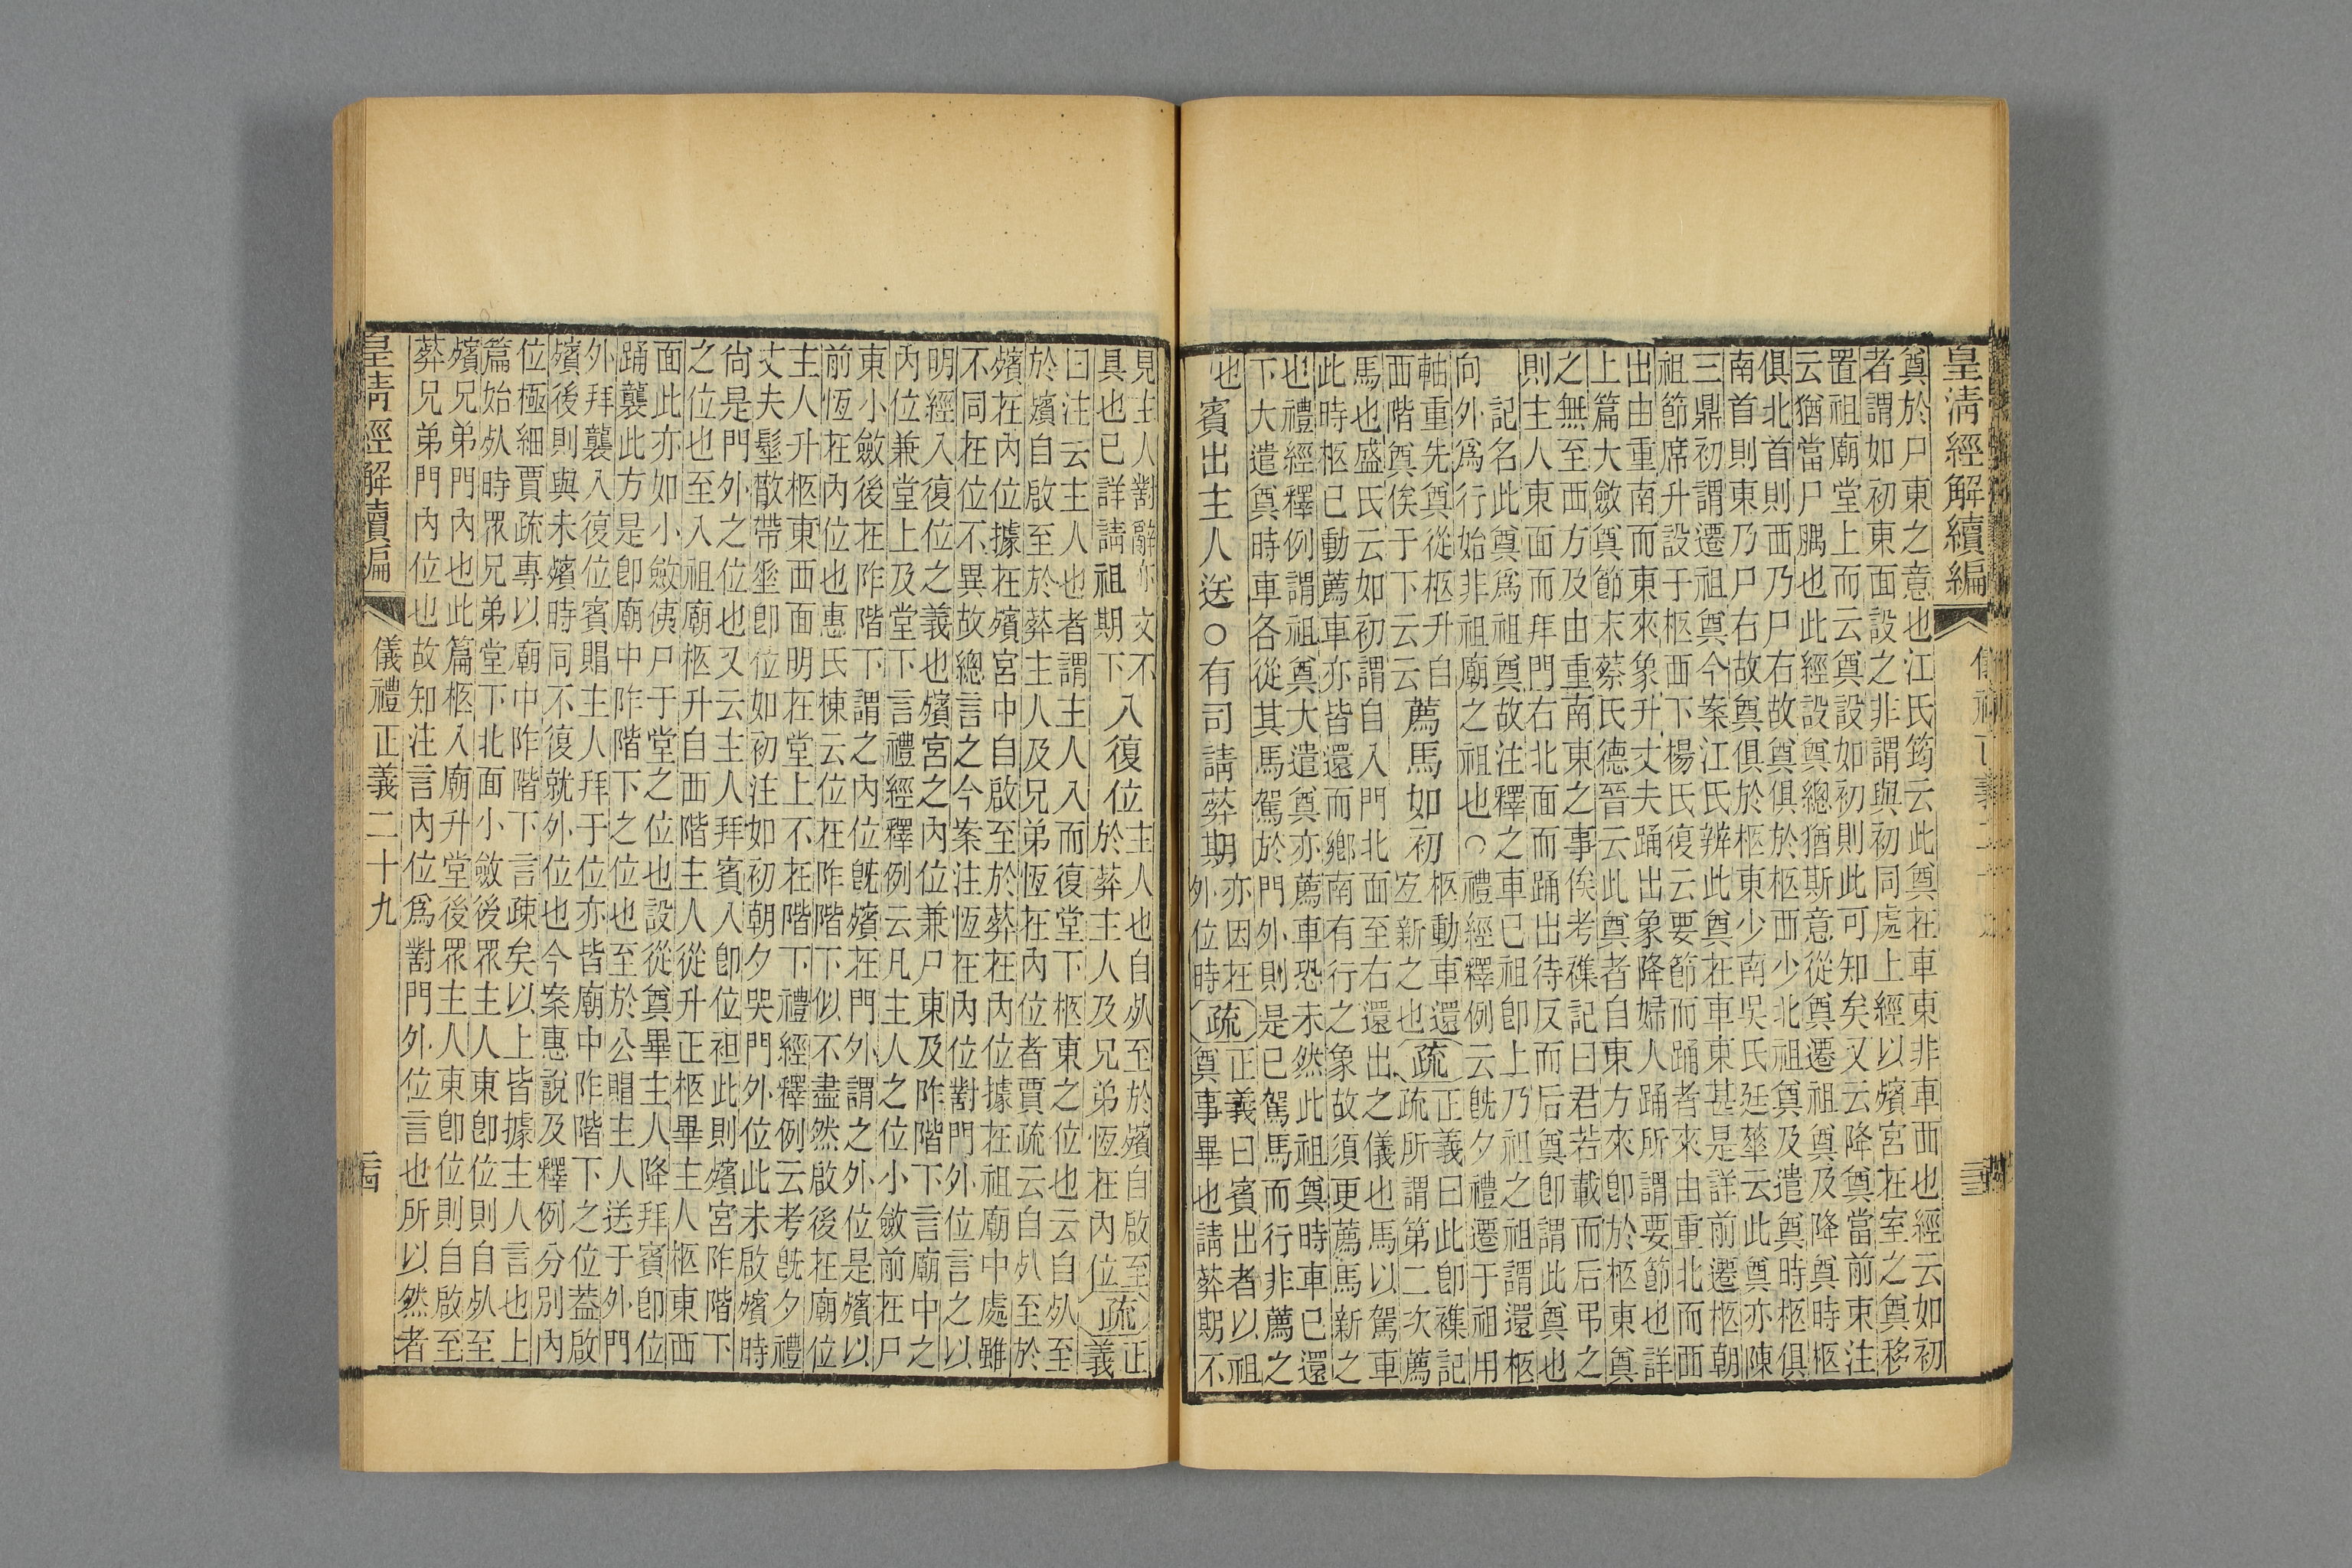 皇清經解續編
奠於尸東之意也江氏筠云此奠在車東非車西也經云如初
者謂如初東面設之非謂與初同處上經以殯宮在室之奠移
置祖廟堂上而云奠設如初則此可知矣又云降奠當前束注
云猶當尸腢也此經設奠總猶斯意從奠遷祖奠及降奠時柩
俱北首則西乃尸右故奠俱於柩西少北祖奠及遣奠時柩俱
南首則東乃尸右故奠俱於柩東少南吳氏廷華云此奠亦陳
三鼎初謂遷祖奠今案江氏辨此奠在車東甚是詳前遷柩朝
祖節席升設于柩西下楊氏復云要節而踊者來由重北而西
出由重南而東來象升丈夫踊出象降婦人踊所謂要節也詳
上篇大斂奠節末蔡氏德晉云此奠者自東方來卽於柩東奠
之無至西方及由重南東之事俟考襍記曰君若載而后弔之
則主人東面而拜門右北面而踊出待反而后奠卽謂此奠也
記名此奠爲祖奠故注釋之車已祖卽上乃祖之祖謂還柩
向外爲行始非祖廟之祖也○禮經釋例云旣夕禮遷于祖用
軸重先奠從柩升自
西階奠俟于下云云
薦馬如初
柩動車還
宐新之也
疏
正義曰此卽襍記
疏所謂第二次薦
馬也盛氏云如初謂自入門北面至右還出之儀也馬以駕車
此時柩已動薦車亦皆還而鄉南有行之象故須更薦馬新之
也禮經釋例謂祖奠大遣奠亦薦車恐未然此祖奠時車已還
下大遣奠時車各從其馬駕於門外則是已駕馬而行非薦之
也
賓出主人送○有司請葬期
亦因在
外位時
疏
正義曰賓出者以祖
奠事畢也請葬期不
見主人對辭
具也已詳請祖期下
入復位
主人也自死至於殯自啟至
於葬主人及兄弟恆在內位
疏
正
義
曰注云主人也者謂主人入而復堂下柩東之位也云自死至
於殯自啟至於葬主人及兄弟恆在內位者賈疏云自死至於
殯在內位據在殯宮中自啟至於葬在內位據在祖廟中處雖
不同在位不異故總言之今案注恆在內位對門外位言之以
明經入復位之義也殯宮之內位兼尸東及阼階下言廟中之
內位兼堂上及堂下言禮經釋例云凡主人之位小斂前在尸
東小斂後在阼階下謂之內位旣殯在門外謂之外位是殯以
前恆在內位也惠氏棟云位在阼階下似不盡然啟後在廟位
主人升柩東西面明在堂上不在階下禮經釋例云考旣夕禮
丈夫髽散帶垂卽位如初注如初朝夕哭門外位此未啟殯時
尙是門外之位也又云主人拜賓入卽位袒此則殯宮阼階下
之位也至入祖廟柩升自西階主人從升正柩畢主人柩東西
面此亦如小斂侇尸于堂之位也設從奠畢主人降拜賓卽位
踊襲此方是卽廟中阼階下之位也至於公賵主人送于外門
外拜襲入復位賓賵主人拜于位亦皆廟中阼階下之位葢啟
殯後則與未殯時同不復就外位也今案惠說及釋例分別內
位極細賈疏專以廟中阼階下言疎矣以上皆據主人言也上
篇始死時眾兄弟堂下北面小斂後眾主人東卽位則自死至
殯兄弟門內也此篇柩入廟升堂後眾主人東卽位則自啟至
葬兄弟門內位也故知注言內位爲對門外位言也所以然者
皇清經解續編
儀禮正義二十九